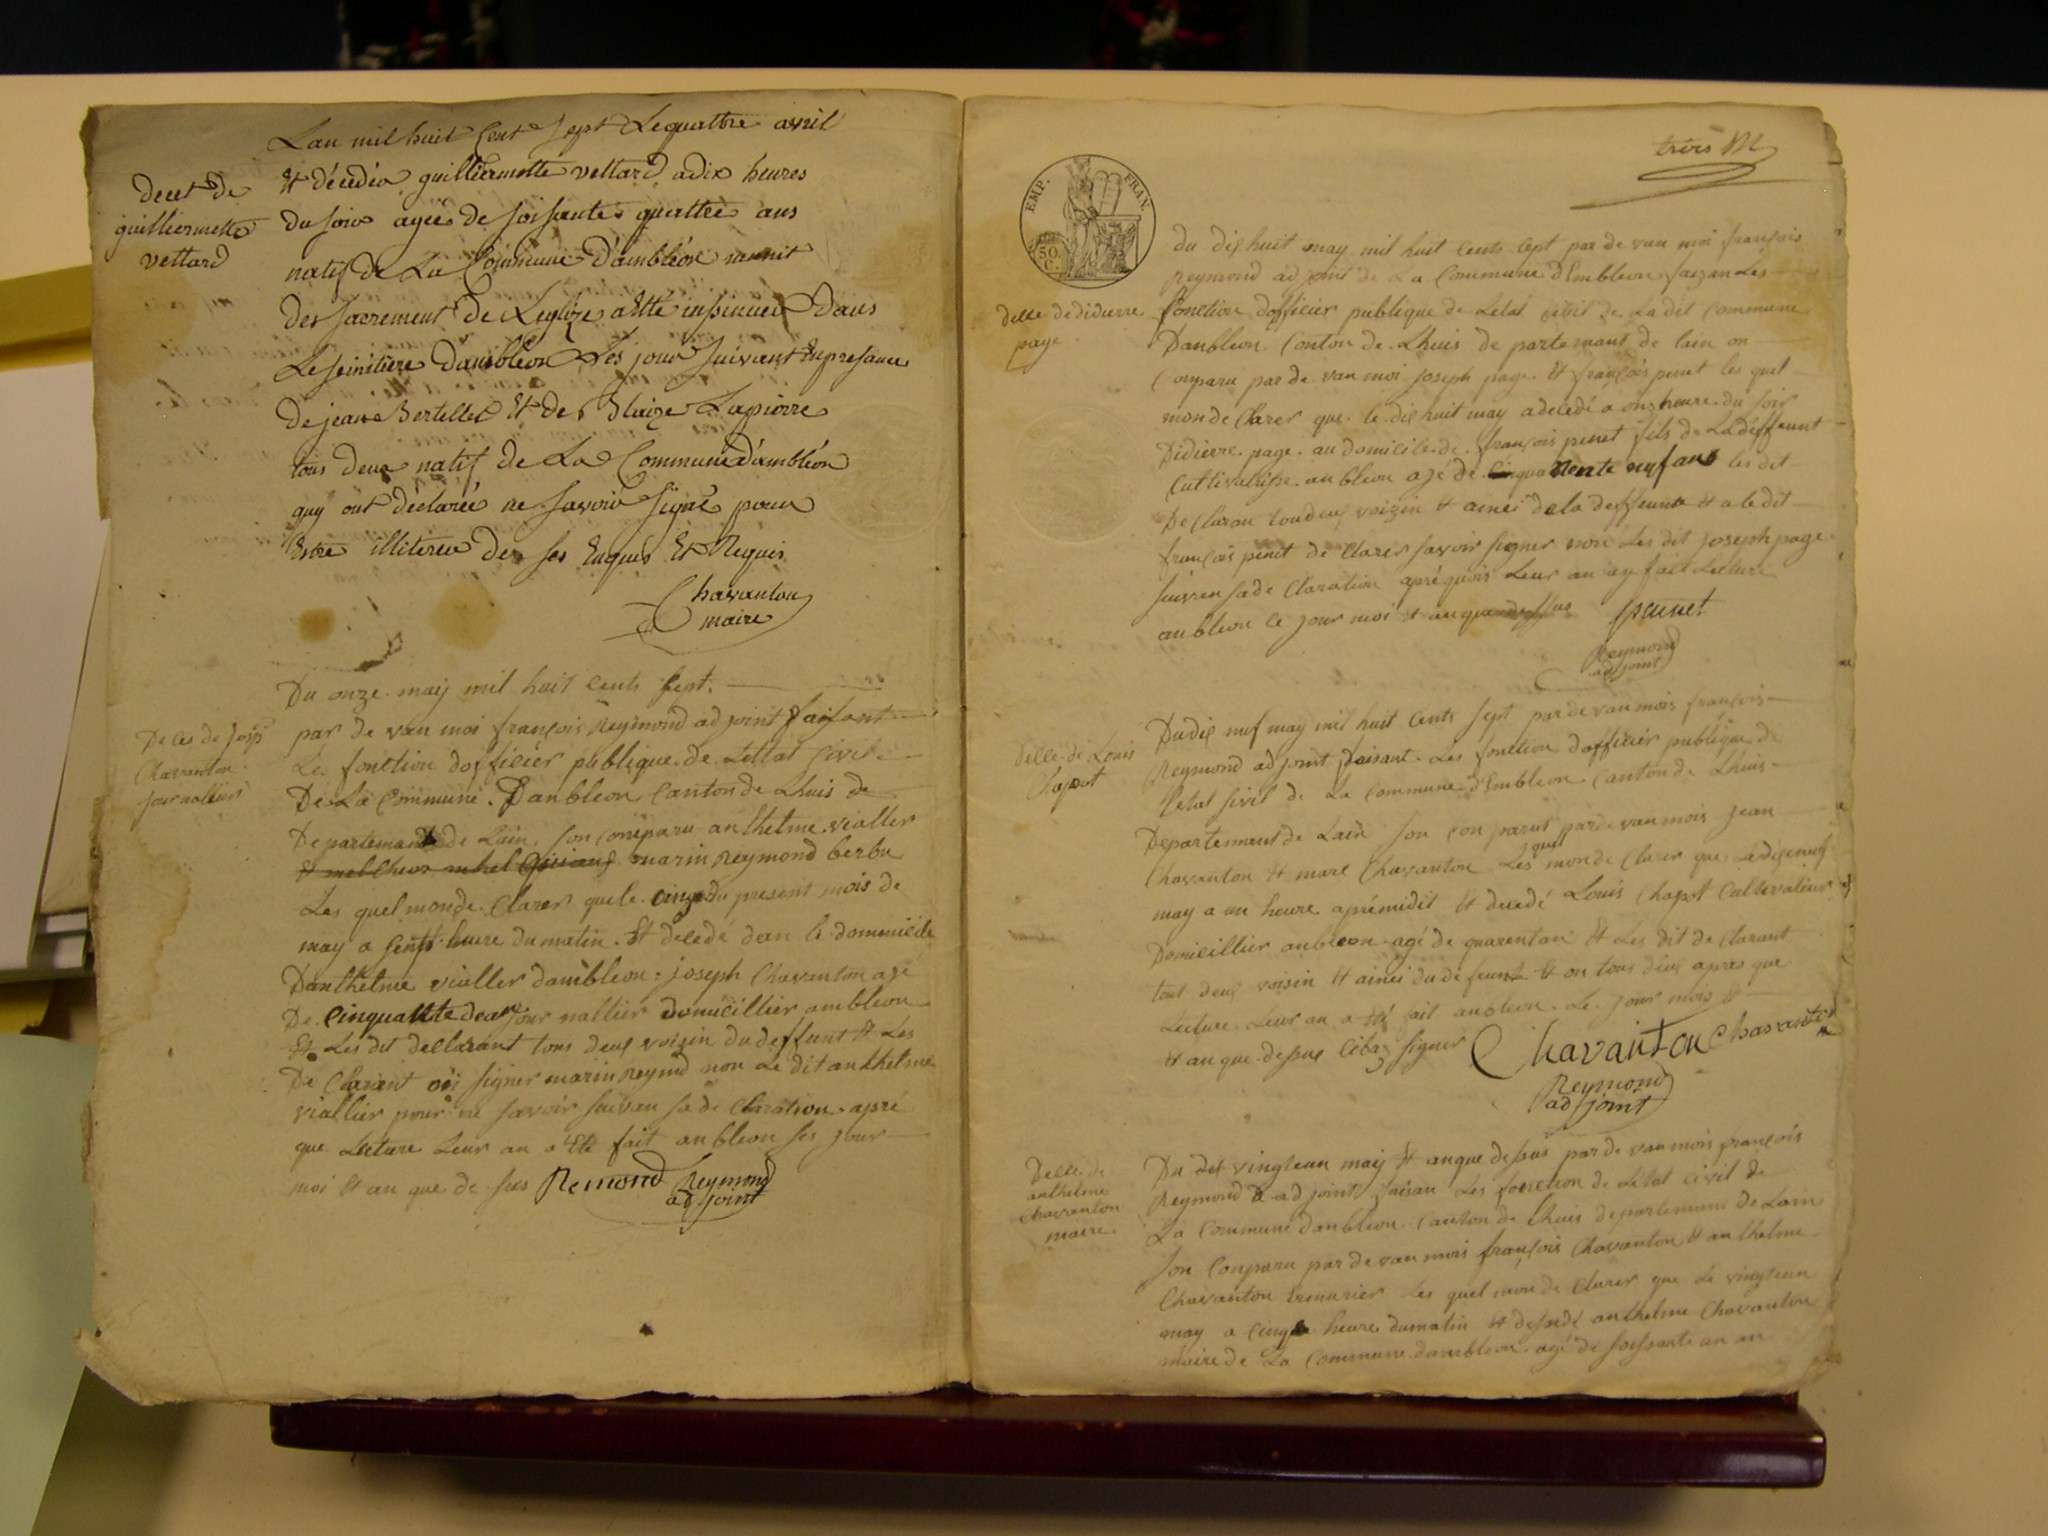 Lan mil huit Cent Sept Le quattre avril
decet de
guilliermette
vettard
Et décédéa guilliermette vettard a dix heures
du soir agée de soisante quattre ans
natif de La Commune d'ambléon munit
der sacrement de Leglize a Ette inssinuée dans
Le seinitiere dambléon Les jour suivant En presance
de jean Bertellet Et de Blaize Lapierre
tous deux natif de La Commune d'ambléon
quy ont déclarée ne savoir signé pour
Estre illiteree de se Enquis Et Requis
Chavanton
maire
Du onze may mil huit cents sept.
Deces de josp
Chavanton
journallier
par de van moi françois Reymond adjoint faisant
Les fonction dofficier publique de Lettat sivil
De La Commune Danbleon Canton de Lhuis de
Departemant de Lain, son conparu anthelme vialler
marin Reymond berbu
Les quel mon de Clarer que le cinq du present mois de
may a sept heure du matin Et decedé dan le domicile
Danthelme vialler dambleon joseph Chavanton agé
De Cinquante deux journallier domicillier ambleon
Et Les dit declarant tous deux voisin du deffunt Et Les
De Clarant on signer marin Reymd non Le dit anthelme
viallier pour ne savoir suivan sa de Claration apré
que Lecture Leur an a Eté fait anbleon les jour
moi Et an que de sus Remond Reymond
adjoint
trois M
EMP. FRAN.
50
C.
delle de didierre
page
du dishuit may mil huit cents sept par de van moi françois
Reymond adjoint de La Commune d'Embleon faizan Les
fonction dofficier publique de Letat sivil de La dit Commune
Danbleon Conton de Lhuis de partemant de lain on
Conparu par de van moi joseph page Et françois penet les quel
mon de Clarer que le dishuit may a decedé a onz heure du soir
Didierre page au domicile de françois penet fils de La deffeunt
Cultivatrisse anbleon agé de les dit
De Claran tou deux voizin Et aines de la deffeunte Et a le dit
françois penet de Clarer savoir signer non Les dit joseph page
suivan sa de Claration apré quois Leur an ay fait Lecture
anbleon le jour moi Et an que dessus paunet
Reymond
adjoint
Delle de Louis
Chapot
Du dis neuf may mil huit Cents sept par de van mois françois
Reymond adjoint faisant Les fonction dofficier publique de
Letat sivil de La Commune d'Embleon Canton de Lhuis
Departement de Lain son Con parut par de van mois jean
Chavanton Et marc Chavanton Les quel mon de Clarer que Le diseneuf
may a un heure aprémidit Et decedé Louis Chapot Cultivateur
Domicillier anbleon agé de quarentan Et Les dit de Clarant
tout deux voisin Et aines du defeunt Et on tous deux apres que
Lecture Leur an a Eté fait anbleon Le jour mois Et
Et an que dessus signer Chavanton Chavanton
Reymond
adjoint
Delle de
anthelme
Chavanton
maire
Du dit vingteun may Et an que desus par de van mois françois
Reymond adjoint faisan Les fonction de Letat Civil de
La Commune danbleon Canton de Lhuis departemans de Lain
son Conparu par de van mois françois Chavanton Et anthelme
Chavanton Les quel mon de Clarer que Le vingteun
may a cinq heure du matin Et desedé anthelme Chavanton
maire de La Commune dambleon agé de soissante an